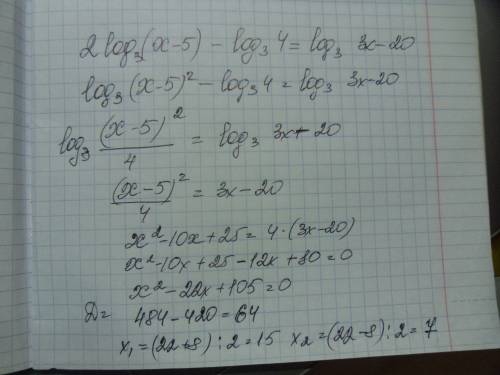 2 log₃(x-5) - log₃ 4 = log₃ 3x-20
log₃ (x-5)² - log₃ 4 = log₃ 3x-20
log₃ (x-5)²/4 = log₃ 3x-20
(x-5)²/4 = 3x-20
x²-10x+25 = 4·(3x-20)
x²-10x+25-12x+80=0
x²-22x+105=0
D= 484-420=64
x₁=(22+8):2=15 x₂=(22-8):2=7